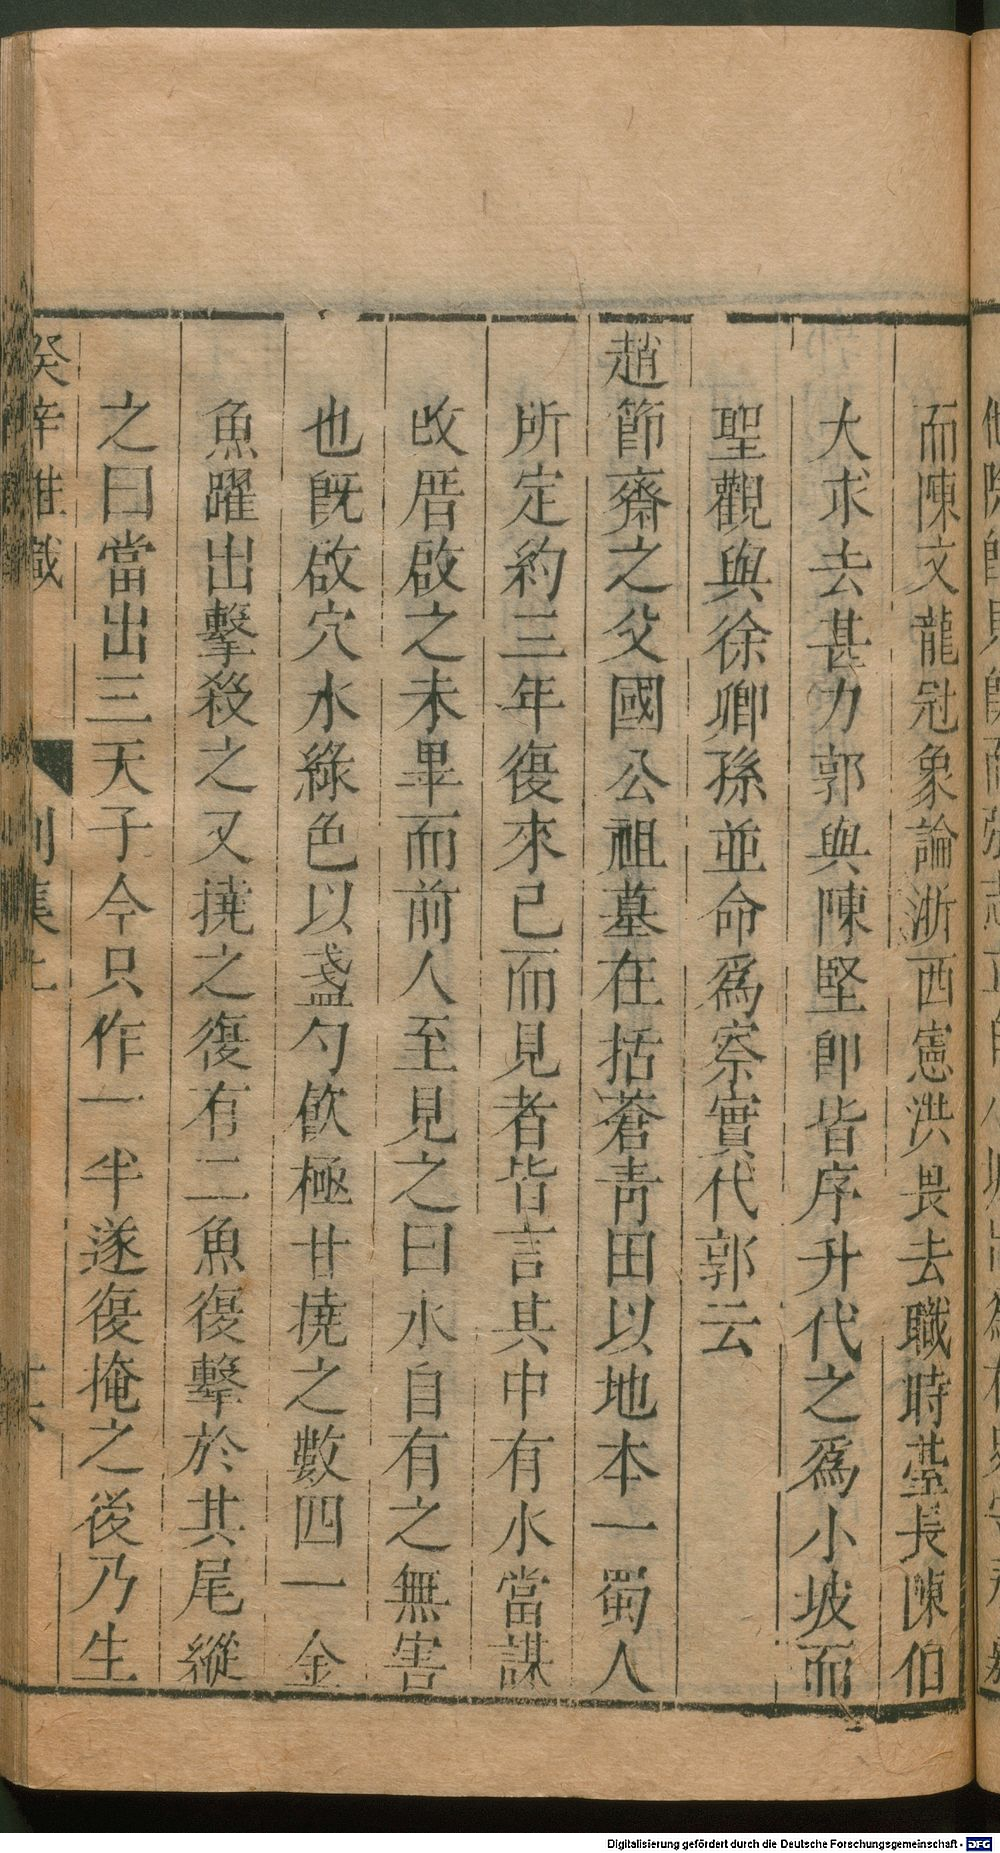 而陳文龍尅象論浙西憲洪畏去職時臺長陳伯
大求去甚力郭與陳堅卽皆序升代之爲小坡而
聖觀與徐卿孫並命爲察實代郭云
趙節齋之父國公祖墓在括蒼靑田以地本一蜀人
所定約三年復來已而見者皆言其中有水當謀
改厝啟之未畢而前人至見之曰水自有之無害
也旣啟穴水綠色以盞勺飮極甘撓之數四一金
魚躍出擊殺之又撓之復有二魚復擊於其尾縱
之曰當出三天子今只作一半遂復掩之後乃生
癸辛雜識 別集上
Digitalisierung gefördert durch die Deutsche Forschungsgemeinschaft - DFG